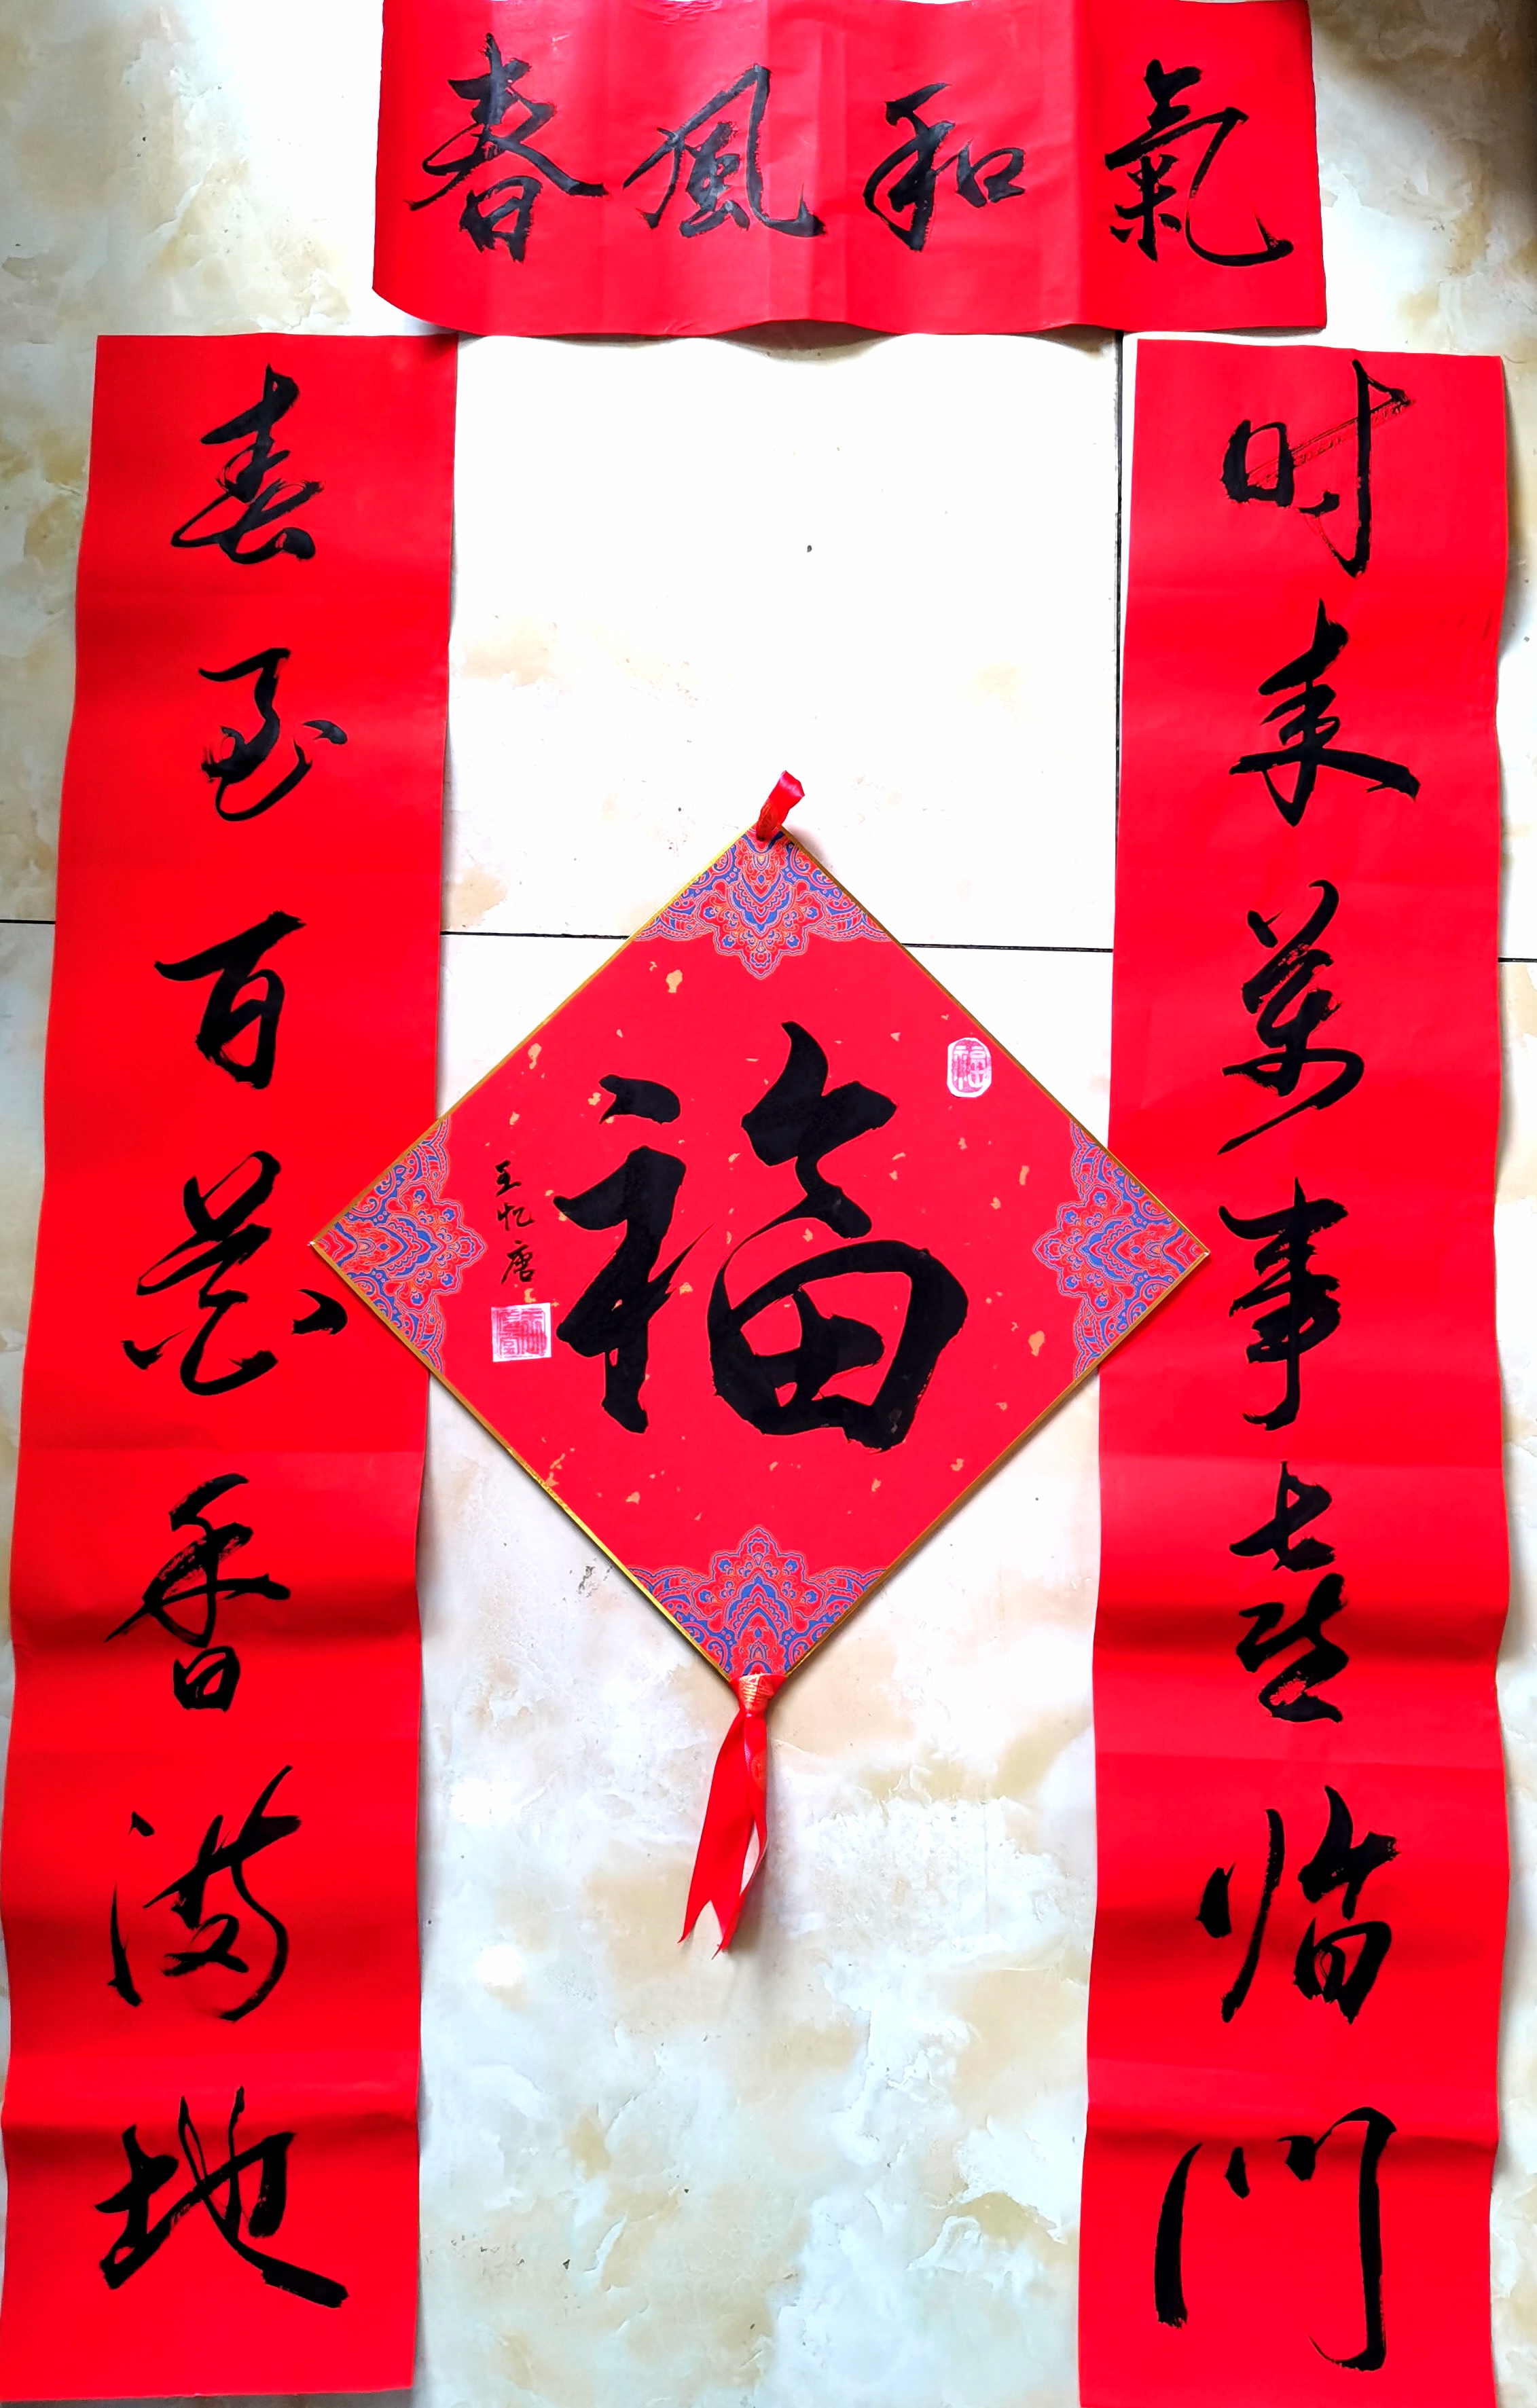 春風和氣
春至百花香満地
时来萬事喜临門
福
福
王忆唐